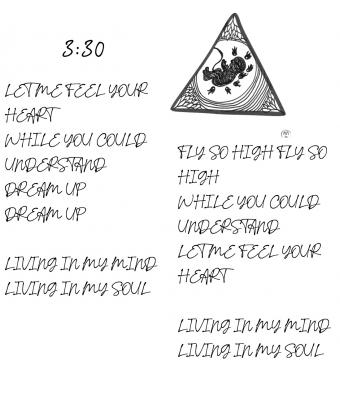 3:30
LET ME FEEL YOUR
HEART
WHILE YOU COULD
UNDERSTAND
DREAM UP
DREAM UP
LIVING IN MY MIND
LIVING IN MY SOUL
FLY SO HIGH FLY SO
HIGH
WHILE YOU COULD
UNDERSTAND
LET ME FEEL YOUR
HEART
LIVING IN MY MIND
LIVING IN MY SOUL